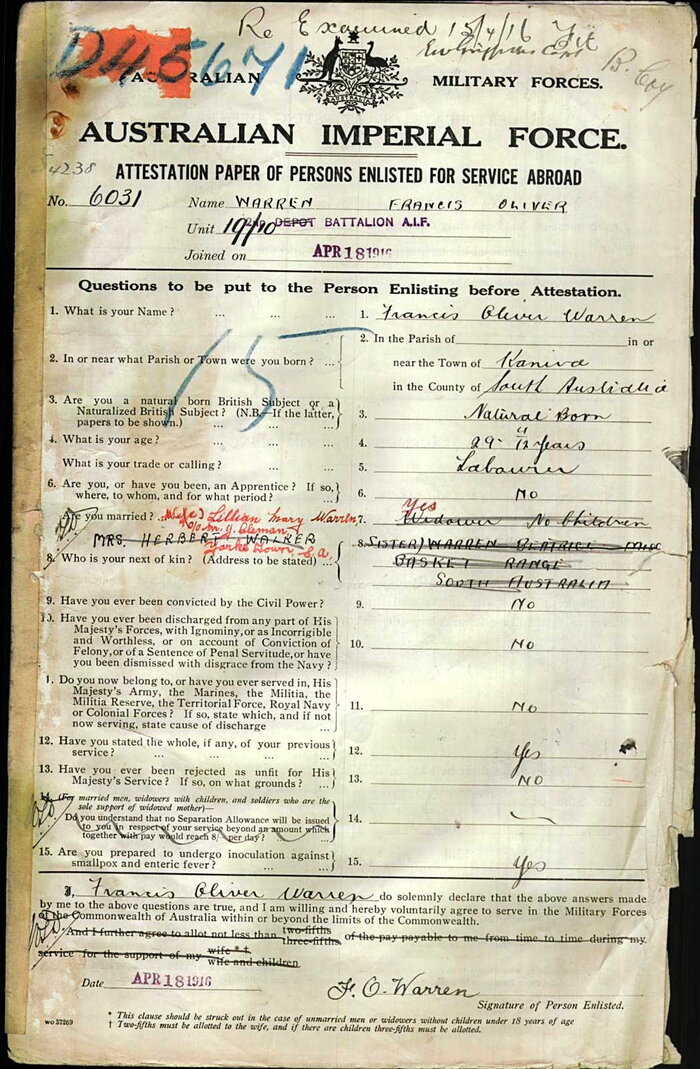 Re Examined 15/4/16 Fit
B. Coy
D45671
AUSTRALIAN MILITARY FORCES.
AUSTRALIAN IMPERIAL FORCE.
54238
ATTESTATION PAPER OF PERSONS ENLISTED FOR SERVICE ABROAD
No. 6031 Name WARREN FRANCIS OLIVER
Unit 19/10 2ND DEPOT BATTALION A.I.F.
Joined on APR 18 1916
Questions to be put to the Person Enlisting before Attestation.
1. What is your Name? ... ... ... 1. Francis Oliver Warren
15
2. In or near what Parish or Town were you born? ... 2. In the Parish of in or
near the Town of Kaniva
in the County of South Australia
3. Are you a natural born British Subject or a
Naturalized British Subject? (N.B.—If the latter,
papers to be shown.) ... ... 3. Natural Born
4. What is your age? ... ... ... 4. 29 11/12 years
What is your trade or calling? ... ... 5. Labourer
6. Are you, or have you been, an Apprentice? If so,
where, to whom, and for what period? ... 6. No
Are you married? ... (Wife) Lillian Mary Warren 7. Yes
Widower No Children
c/o Mr. J. Cleman
MRS. HERBERT WALKER
Yorke Town S.A.
8. Who is your next of kin? (Address to be stated) ... 8. (SISTER) WARREN BEATRICE MISS
BASKET RANGE
SOUTH AUSTRALIA
9. Have you ever been convicted by the Civil Power? ... 9. No
10. Have you ever been discharged from any part of His
Majesty's Forces, with Ignominy, or as Incorrigible
and Worthless, or on account of Conviction of
Felony, or of a Sentence of Penal Servitude, or have
you been dismissed with disgrace from the Navy? ... 10. No
1. Do you now belong to, or have you ever served in, His
Majesty's Army, the Marines, the Militia, the
Militia Reserve, the Territorial Force, Royal Navy
or Colonial Forces? If so, state which, and if not
now serving, state cause of discharge ... 11. No
12. Have you stated the whole, if any, of your previous
service? ... ... ... ... 12. Yes
13. Have you ever been rejected as unfit for His
Majesty's Service? If so, on what grounds? ... 13. No
14. (For married men, widowers with children, and soldiers who are the
sole support of widowed mother)—
Do you understand that no Separation Allowance will be issued
to you in respect of your service beyond an amount which
together with pay would reach 8/- per day? ... 14.
15. Are you prepared to undergo inoculation against
smallpox and enteric fever? ... ... 15. Yes
I, Francis Oliver Warren do solemnly declare that the above answers made
by me to the above questions are true, and I am willing and hereby voluntarily agree to serve in the Military Forces
of the Commonwealth of Australia within or beyond the limits of the Commonwealth.
And I further agree to allot not less than two-fifths three-fifths of the pay payable to me from time to time during my
service for the support of my wife * † wife and children
Date APR 18 1916
F. O. Warren
Signature of Person Enlisted.
* This clause should be struck out in the case of unmarried men or widowers without children under 18 years of age
† Two-fifths must be allotted to the wife, and if there are children three-fifths must be allotted.
wo 57269